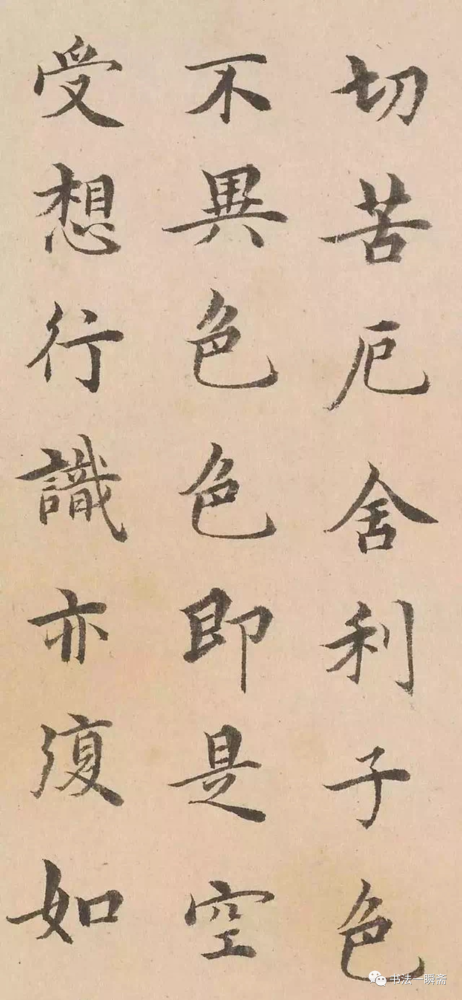 切苦厄舍利子色
不異色色即是空
受想行識亦復如
书法一瞬斋